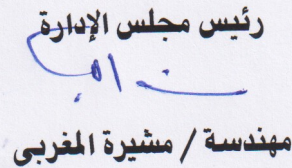 رئيس مجلس الإدارة
مهندسة / مشيرة المغربى